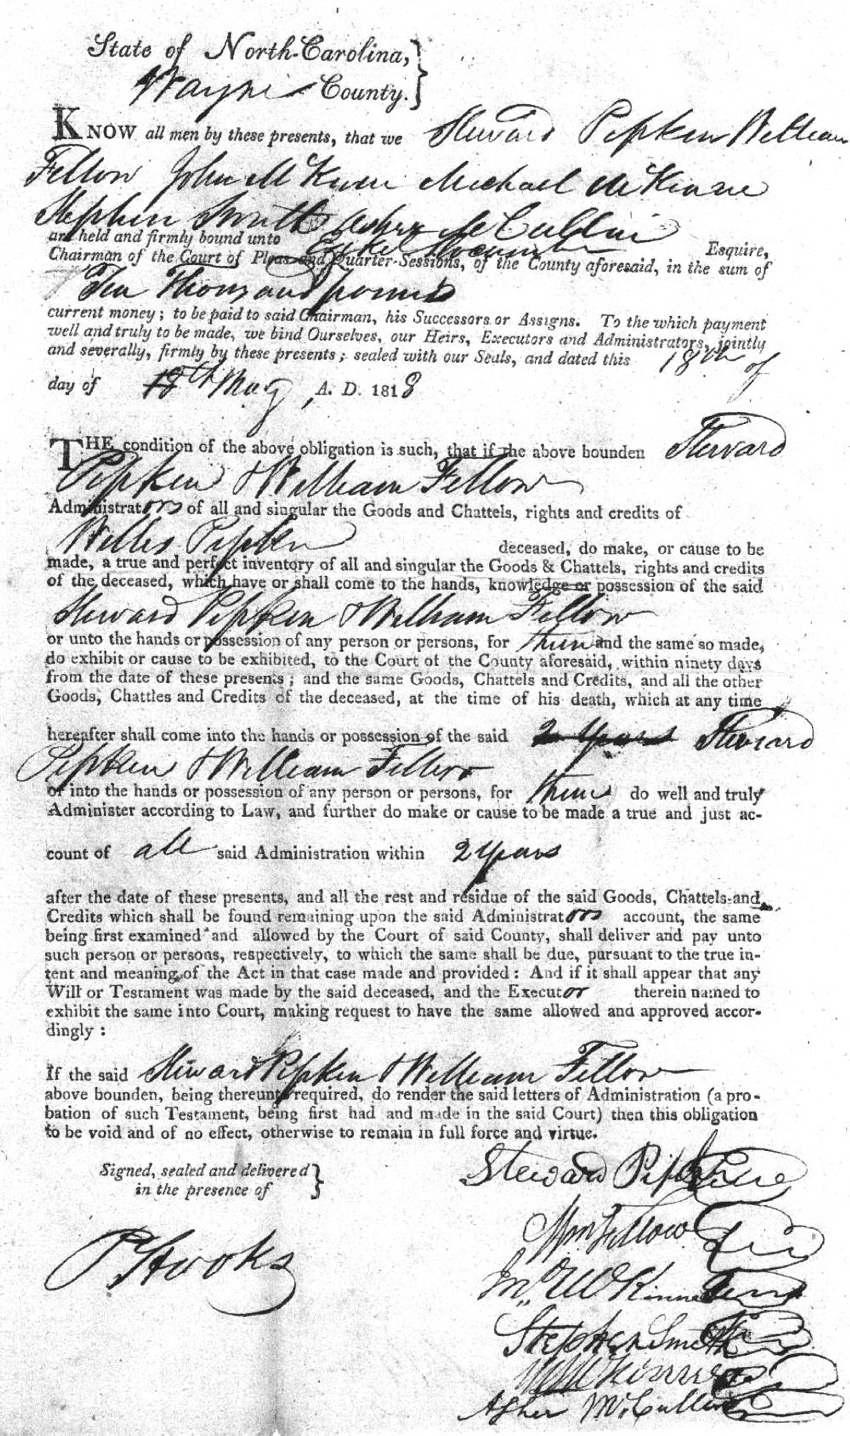 State of North-Carolina,
Wayne County.
KNOW all men by these presents, that we Steward Pipken William
Fellow John McKinne Michael McKinne
Stephen Smith Asher McCullin
are held and firmly bound unto Ezekel Slocumb Esquire,
Chairman of the Court of Pleas and Quarter-Sessions, of the County aforesaid, in the sum of
Ten Thousand pounds
current money; to be paid to said Chairman, his Successors or Assigns. To the which payment
well and truly to be made, we bind Ourselves, our Heirs, Executors and Administrators, jointly
and severally, firmly by these presents; sealed with our Seals, and dated this 18th of
day of 18th May, A. D. 1818
THE condition of the above obligation is such, that if the above bounden Steward
Pipken & William Fellow
Administrators of all and singular the Goods and Chattels, rights and credits of
Willis Pipken deceased, do make, or cause to be
made, a true and perfect inventory of all and singular the Goods & Chattels, rights and credits
of the deceased, which have or shall come to the hands, knowledge or possession of the said
Steward Pipken & William Fellow
or unto the hands or possession of any person or persons, for them and the same so made,
do exhibit or cause to be exhibited, to the Court of the County aforesaid, within ninety days
from the date of these presents; and the same Goods, Chattels and Credits, and all the other
Goods, Chattles and Credits of the deceased, at the time of his death, which at any time
hereafter shall come into the hands or possession of the said 2 years Steward
Pipken & William Fellow
or into the hands or possession of any person or persons, for them do well and truly
Administer according to Law, and further do make or cause to be made a true and just ac-
count of all said Administration within 2 years
after the date of these presents, and all the rest and residue of the said Goods, Chattels and
Credits which shall be found remaining upon the said Administrators account, the same
being first examined and allowed by the Court of said County, shall deliver and pay unto
such person or persons, respectively, to which the same shall be due, pursuant to the true in-
tent and meaning of the Act in that case made and provided: And if it shall appear that any
Will or Testament was made by the said deceased, and the Executor therein named to
exhibit the same into Court, making request to have the same allowed and approved accor-
dingly:
If the said Steward Pipken & William Fellow
above bounden, being thereunto required, do render the said letters of Administration (a pro-
bation of such Testament, being first had and made in the said Court) then this obligation
to be void and of no effect, otherwise to remain in full force and virtue.
Signed, sealed and delivered
in the presence of
P Hooks
Steward Pipken
Wm Fellow
Jno McKinne
Stephen Smith
M McKinne
Asher McCullin